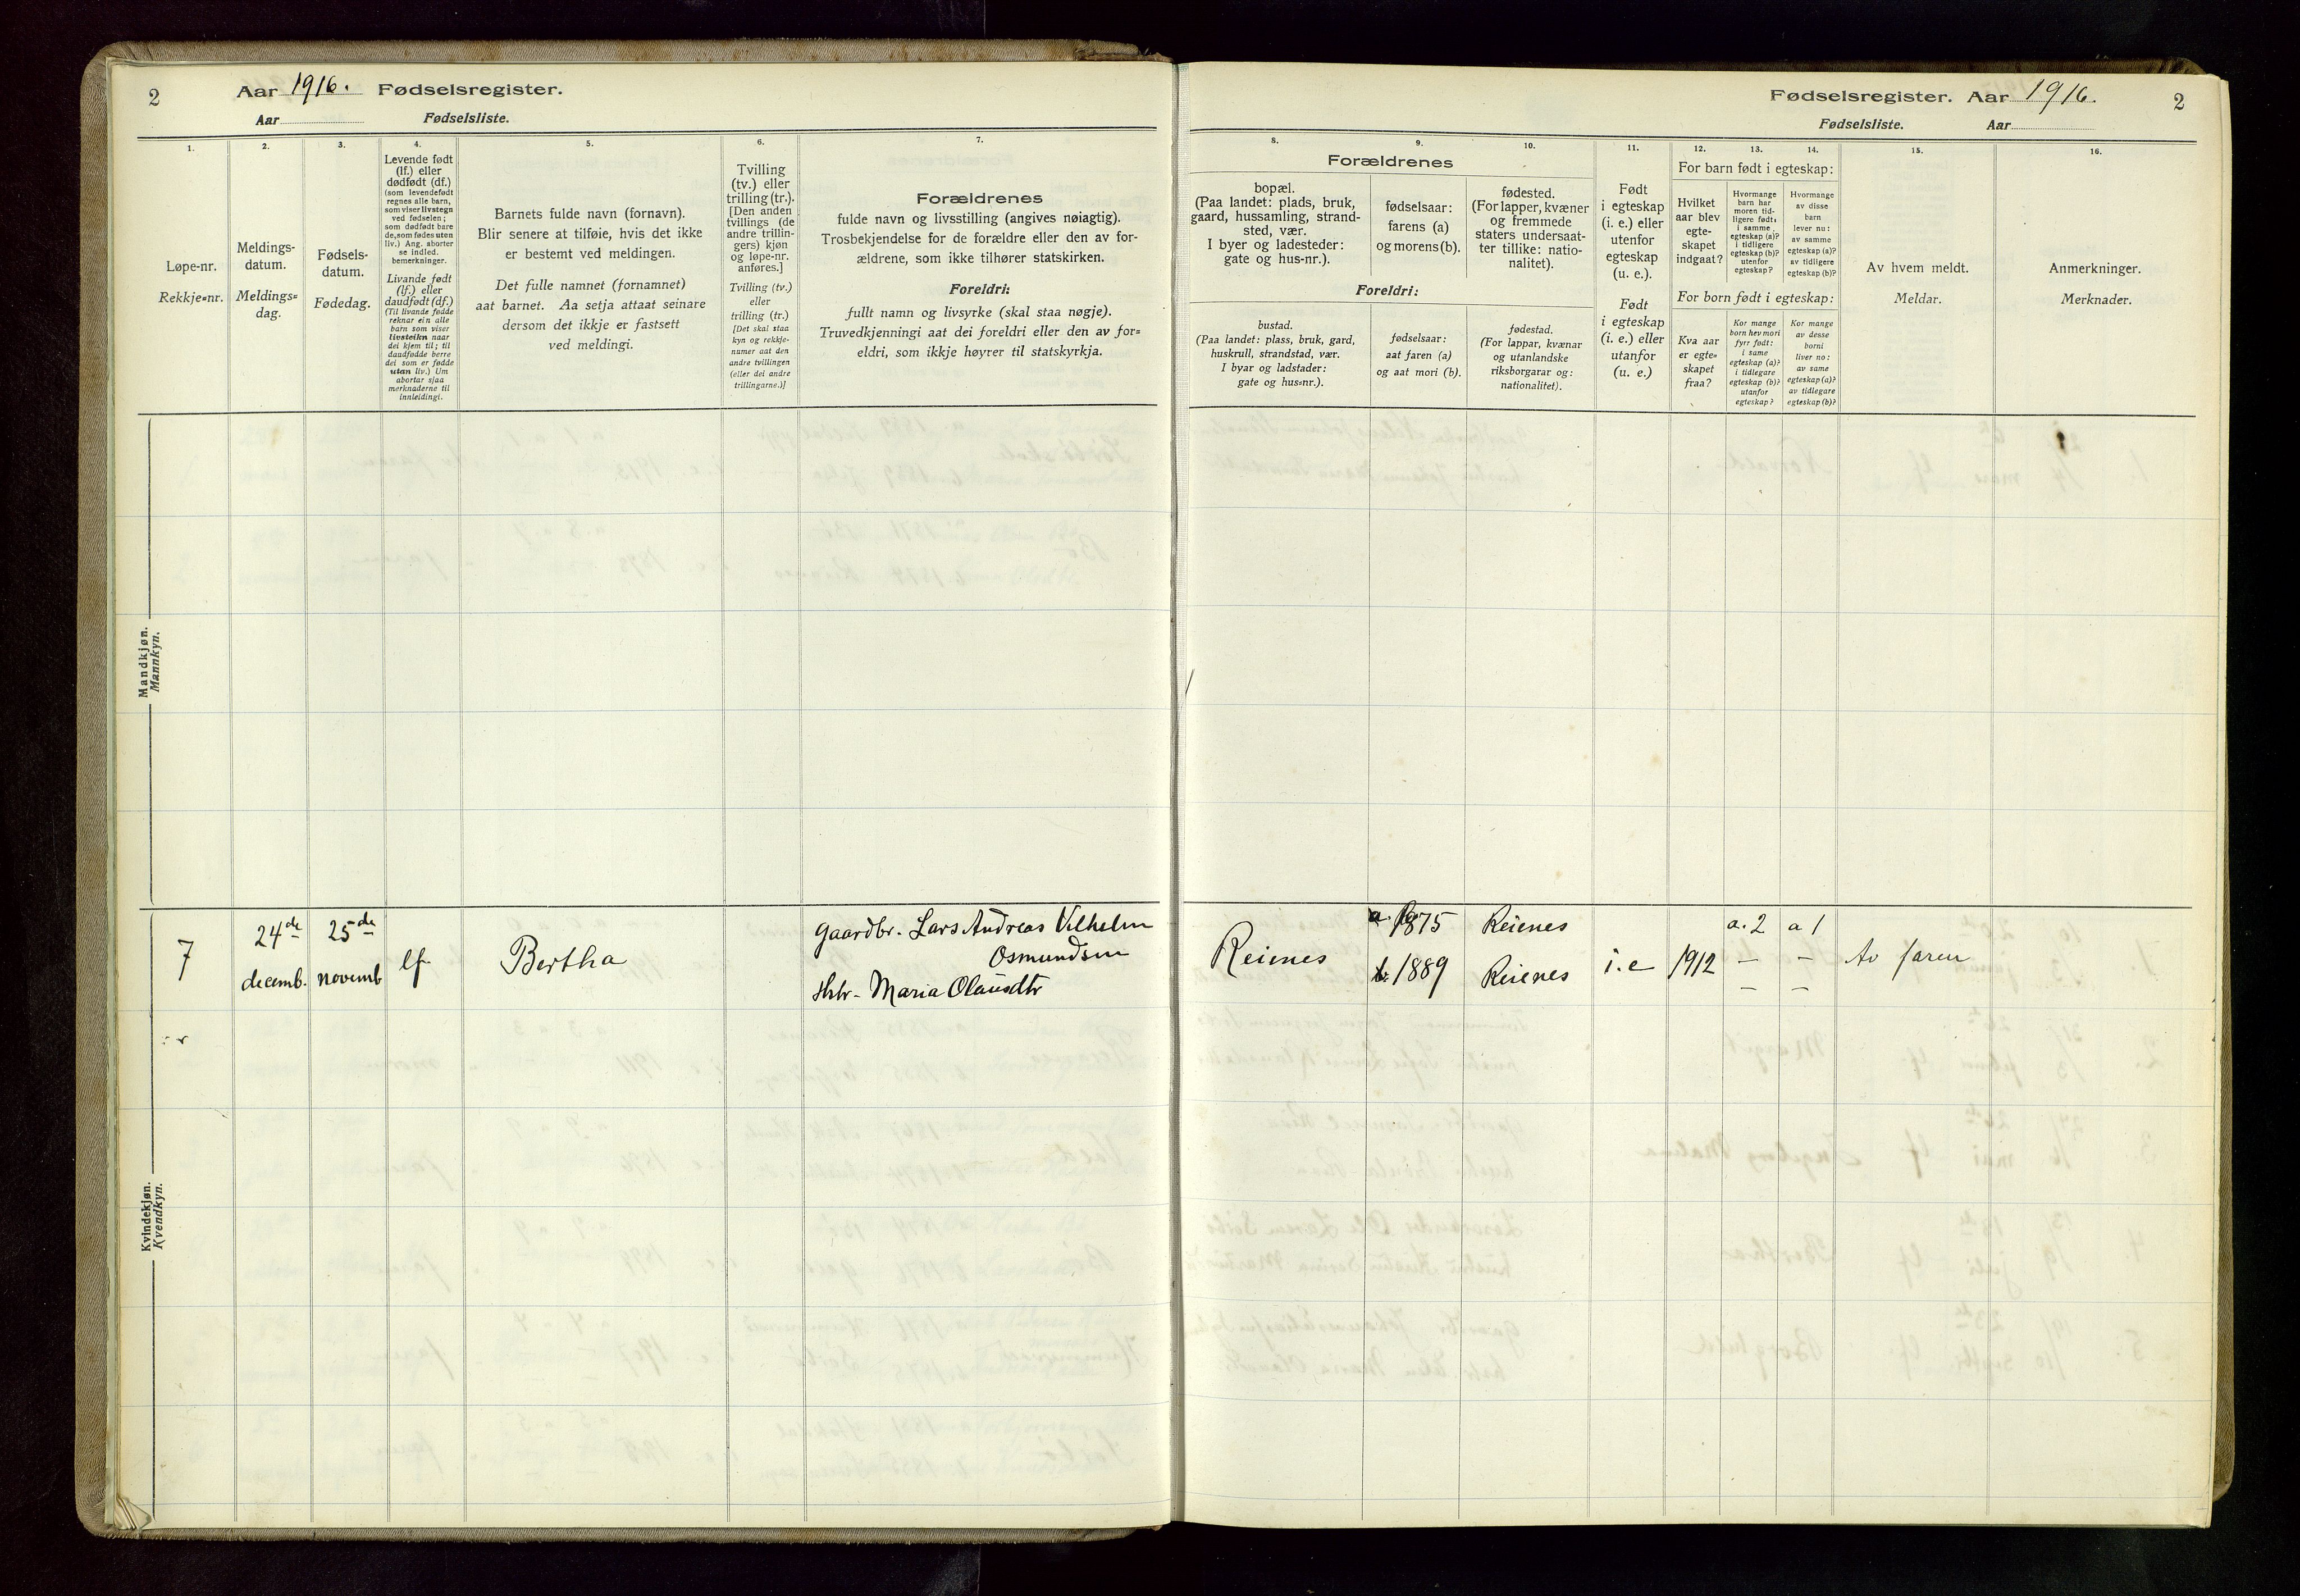 2 Aar 1916. Fødselsregister.
Aar Fødselsliste.
1. 2. 3. 4. 5. 6. 7.
Løpe-nr.
Rekkje=nr.
Meldings-
datum.
Meldings=
dag.
Fødsels-
datum.
Fødedag.
Levende født
(lf.) eller
dødfødt (df.)
(som levendefødt
regnes alle barn,
som viser livstegn
ved fødselen;
som dødfødt bare
de, som fødes uten
liv.) Ang. aborter
se indled.
bemerkninger.
Livande født
(lf.) eller
daudfødt (df.)
(Til livande fødde
reknar ein alle
barn som viser
livsteikn naar
dei kjem til; til
daudfødde berre
dei som er fødde
utan liv.) Um
abortar sjaa
merknaderne til
innleidingi.
Barnets fulde navn (fornavn).
Blir senere at tilføie, hvis det ikke
er bestemt ved meldingen.
Det fulle namnet (fornamnet)
aat barnet. Aa setja attaat seinare
dersom det ikkje er fastsett
ved meldingi.
Tvilling
(tv.) eller
trilling (tr.).
[Den anden
tvillings (de
andre trillin-
gers) kjøn
og løpe-nr.
anføres.]
Tvilling (tv.)
eller
trilling (tr.)
[Det skal staa
kyn og rekkje-
numer aat den
andre tvillingen
(eller dei andre
trillingarne.)]
Forældrenes
fulde navn og livsstilling (angives nøiagtig).
Trosbekjendelse for de forældre eller den av for-
ældrene, som ikke tilhører statskirken.
Foreldri:
fullt namn og livsyrke (skal staa nøgje).
Truvedkjenningi aat dei foreldri eller den av for=
eldri, som ikkje høyrer til statskyrkja.
Mandkjøn.
Mannkyn.
Kvindekjøn.
Kvendkyn.
7
24de
decemb.
25de
novemb
lf.
Bertha
Gaardbr. Lars Andreas Vilhelm
Osmundsen
Hstr. Maria Olausdtr
Fødselsregister. Aar 1916. 2
Fødselsliste. Aar
8. 9. 10. 11. 12. 13. 14. 15. 16.
Forældrenes
bopæl.
(Paa landet: plads, bruk,
gaard, hussamling, strand-
sted, vær.
I byer og ladesteder:
gate og hus-nr.).
fødselsaar:
farens (a)
og morens (b).
fødested.
(For lapper, kvæner
og fremmede
staters undersaat-
ter tillike: natio-
nalitet).
Foreldri:
bustad.
(Paa landet: plass, bruk, gard,
huskrull, strandstad, vær.
I byar og ladstader:
gate og hus=nr.).
fødselsaar:
aat faren (a)
og aat mori (b).
fødestad.
(For lappar, kvænar
og utanlandske
riksborgarar og:
nationalitet).
Født
i egteskap
(i. e.) eller
utenfor
egteskap
(u. e.).
Født
i egteskap
(i. e.) eller
utanfor
(u. e.)
For barn født i egteskap:
Hvilket
aar blev
egte-
skapet
indgaat?
Hvormange
barn har
moren tid-
ligere født:
i samme
egteskap (a)?
i tidligere
egteskap (b)?
utenfor
egteskap?
Hvormange
av disse
barn
lever nu:
av samme
egteskap (a)?
av tidligere
egteskap (b)?
For born født i egteskap:
Kva aar
er egte=
skapet
fraa?
Kor mange
born hev mori
fyrr født:
i same
egteskap (a)?
i tidlegare
egteskap (b)?
utanfor
egteskap?
Kor mange
av desse
borni
liver no:
av same
egteskap (a)?
av tidlegare
egteskap (b)?
Av hvem meldt.
Meldar.
Anmerkninger.
Merknader.
Reienes
a. 1875
b. 1889
Reienes
Reienes
i. e
1912
a. 2
–
–
a 1
–
–
Av faren